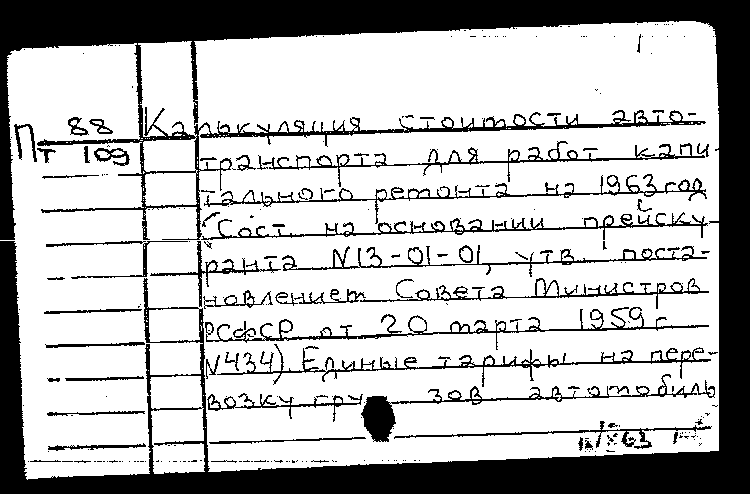 П 88
т 109
Калькуляция стоимости авто-
транспорта для работ капи-
тального ремонта на 1963 год
(Сост. на основании прейску-
ранта N13-01-01, утв. поста-
новлением Совета Министров
РСФСР от 20 марта 1959 г.
N434). Единые тарифы на пере-
возку гру зов автомобиль
63